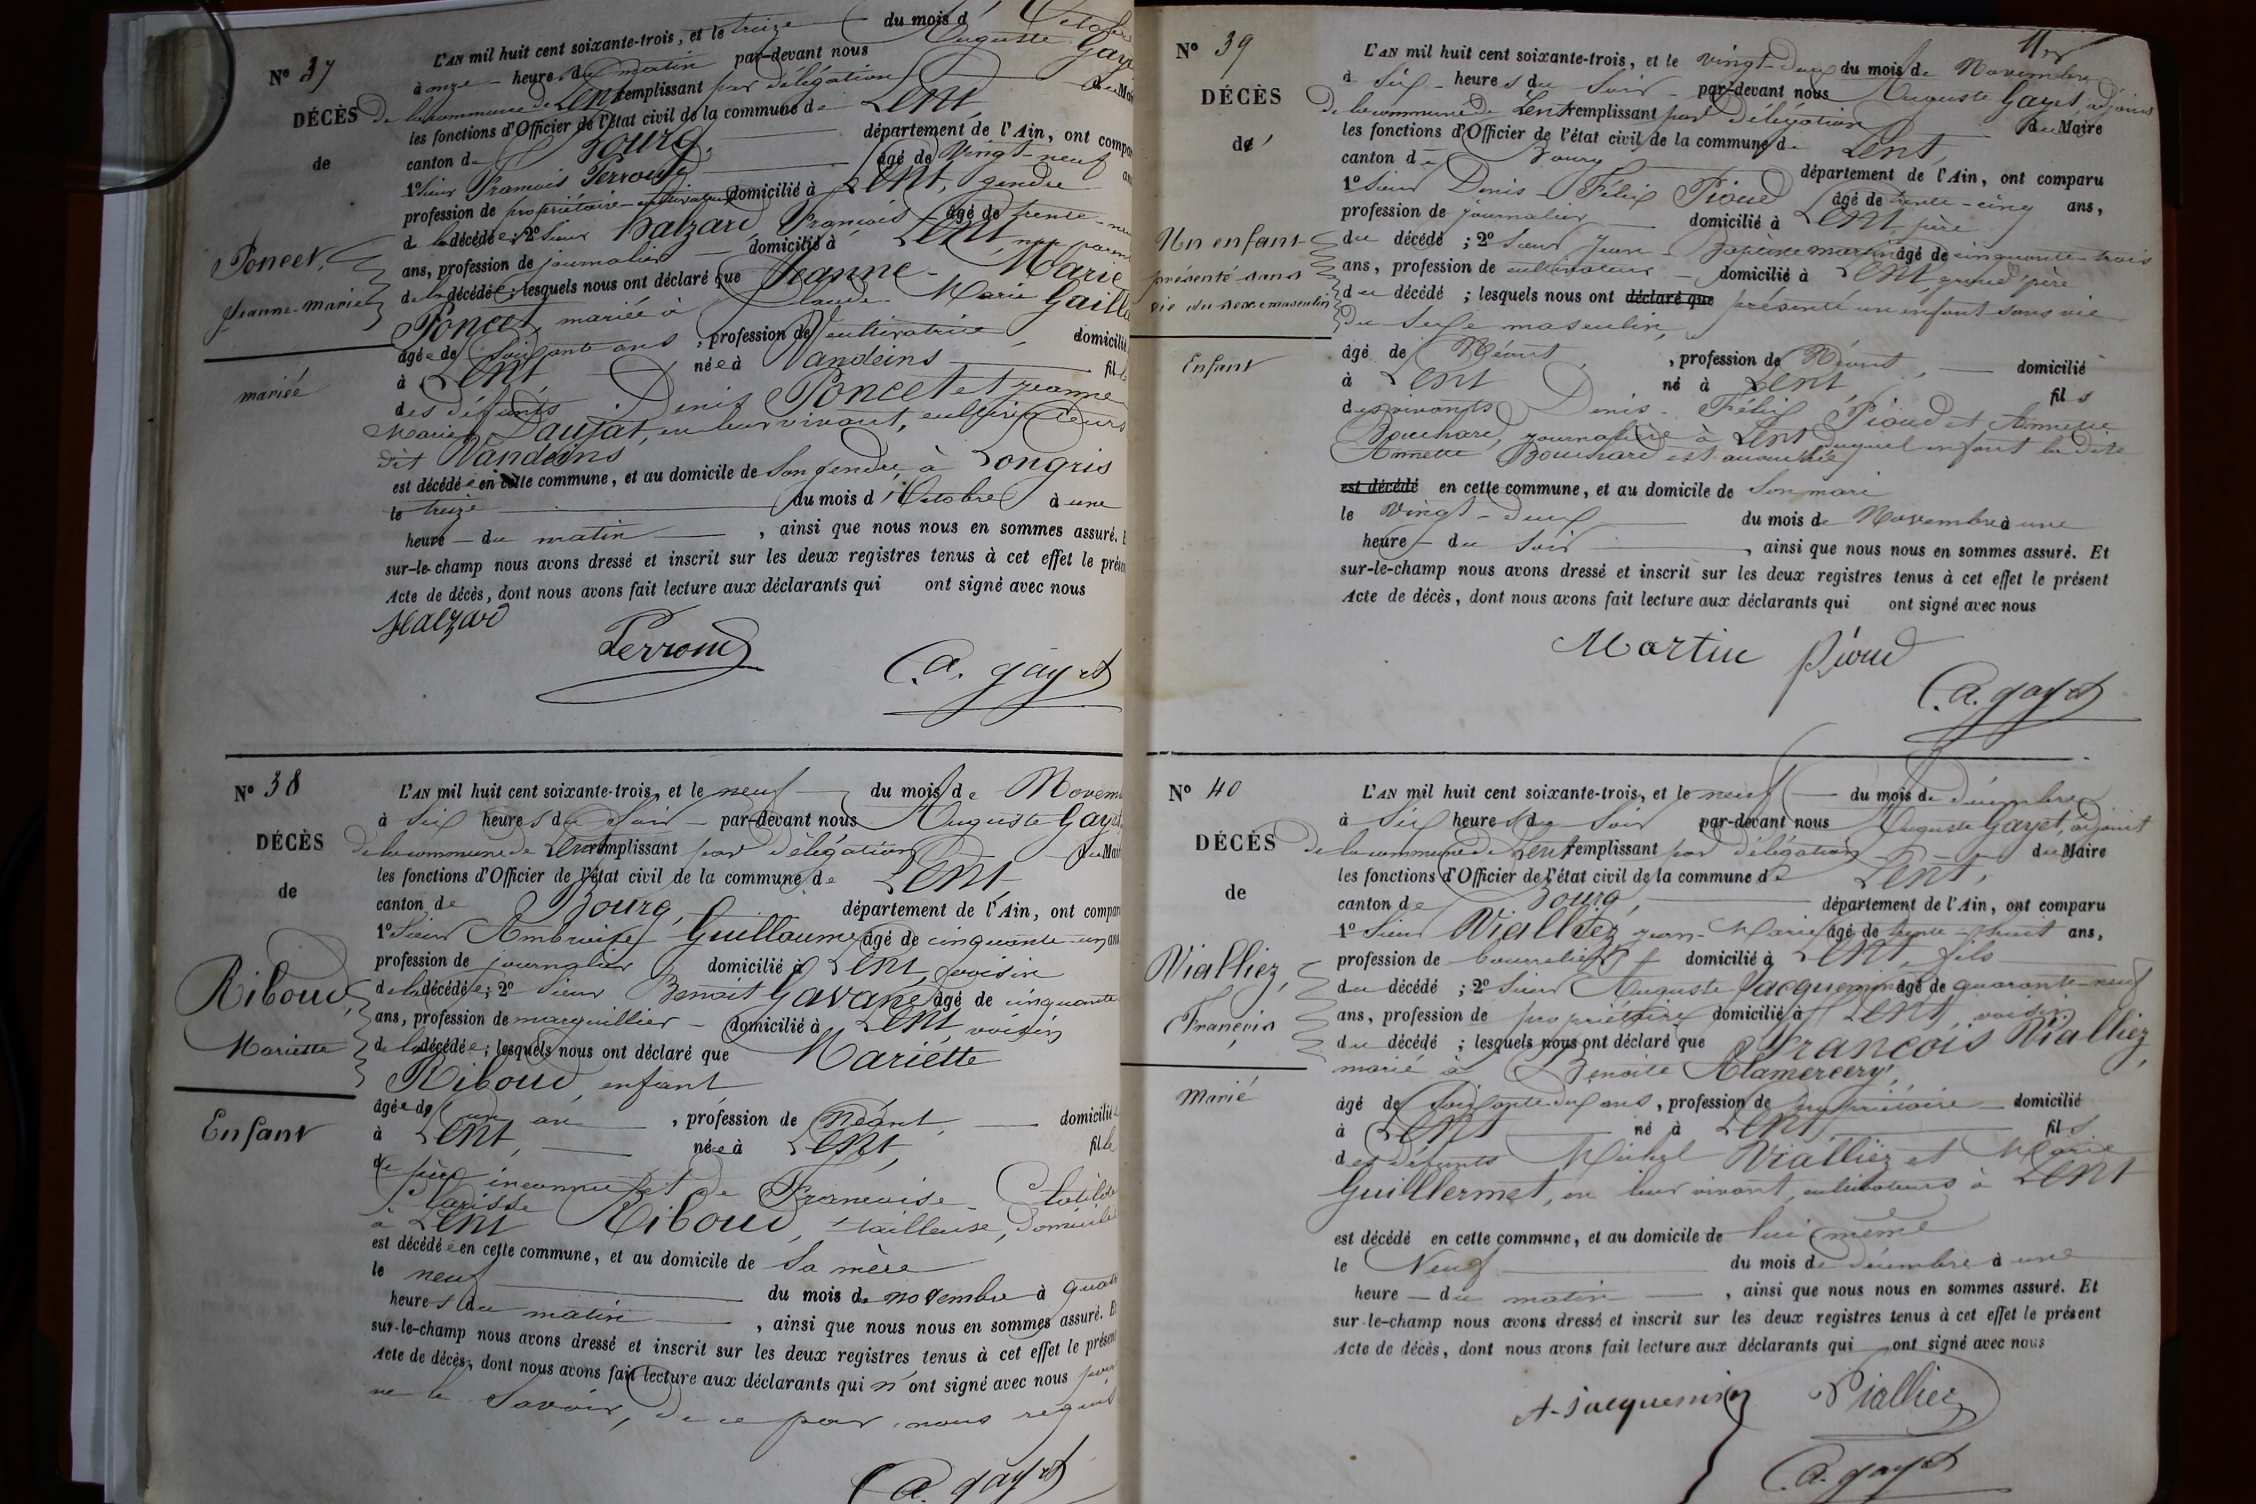 N° 37
DÉCÈS
de
Poncet,
Jeanne-Marie
mariée
L'AN mil huit cent soixante-trois, et le treize du mois d'Octobre
à onze heures du matin par-devant nous Auguste Gay
de la commune de Lent remplissant par délégation du Mai
les fonctions d'Officier de l'état civil de la commune de Lent,
canton de Bourg, département de l'Ain, ont compa
1° Sieur François Perroud âgé de Vingt-neuf an
profession de propriétaire-cultivateur domicilié à Lent, gendre
de la décédée; 2° Sieur Halzard, François âgé de trente-neu
ans, profession de journalier domicilié à Lent, non paren
de la décédée; lesquels nous ont déclaré que Jeanne-Marie
Poncet, mariée à Claude Marie Gailla
âgée de soixante ans, profession de cultivatrice, domicilié
à Lent née à Vandeins fille
des défunts Denis Poncet et Jeanne
Marie Daujat, en leur vivant, cultivateurs
dit Vandeins
est décédée en cette commune, et au domicile de son gendre, à Longris
le treize du mois d'Octobre à une
heure du matin, ainsi que nous nous en sommes assuré. E
sur-le-champ nous avons dressé et inscrit sur les deux registres tenus à cet effet le prése
Acte de décès, dont nous avons fait lecture aux déclarants qui ont signé avec nous
Halzard
Perroud
A. gayet
N° 38
DÉCÈS
de
Riboud,
Mariette
Enfant
L'AN mil huit cent soixante-trois, et le neuf du mois de Novem
à six heures du soir par-devant nous Auguste Gayet,
de la commune de Lent remplissant par délégation du Mair
les fonctions d'Officier de l'état civil de la commune de Lent
canton de Bourg, département de l'Ain, ont compar
1° Sieur Ambroise Guillaume âgé de cinquante-un ans
profession de journalier domicilié à Lent, voisin
de la décédée; 2° Sieur Benoit Gavand âgé de cinquante
ans, profession de marguillier domicilié à Lent voisin
de la décédée; lesquels nous ont déclaré que Mariette
Riboud, enfant
âgée de un an, profession de Néant, domiciliée
à Lent, née à Lent, fille
de père inconnu et de Françoise Clotilde
Clarisse Riboud, tailleuse, domiciliée
à Lent
est décédée en cette commune, et au domicile de sa mère
le neuf du mois de novembre à quatr
heures du matin, ainsi que nous nous en sommes assuré. E
sur-le-champ nous avons dressé et inscrit sur les deux registres tenus à cet effet le présen
Acte de décès, dont nous avons fait lecture aux déclarants qui n'ont signé avec nous pour
ne le savoir, de ce par nous requis
A. gayet
N° 39
DÉCÈS
d'
Un enfant
présenté sans
vie du sexe masculin
Enfant
L'AN mil huit cent soixante-trois, et le vingt-deux du mois de Novembre
à six heures du soir par-devant nous Auguste Gayet, adjoint
de la commune de Lent remplissant par délégation du Maire
les fonctions d'Officier de l'état civil de la commune de Lent,
canton de Bourg département de l'Ain, ont comparu
1° Sieur Denis-Félix Pioud âgé de trente-cinq ans,
profession de journalier domicilié à Lent, père
du décédé; 2° Sieur Jean-Baptiste Martin âgé de cinquante-trois
ans, profession de cultivateur domicilié à Lent, grand père
du décédé; lesquels nous ont déclaré que présenté un enfant sans vie
du sexe masculin,
âgé de Néant, profession de Néant, domicilié
à Lent né à Lent fils
des vivants Denis-Félix Pioud et Annette
Bouchard, journalière à Lent duquel enfant la dite
Annette Bouchard est accouchée
est décédé en cette commune, et au domicile de son mari
le vingt-deux du mois de Novembre à une
heure du soir, ainsi que nous nous en sommes assuré. Et
sur-le-champ nous avons dressé et inscrit sur les deux registres tenus à cet effet le présent
Acte de décès, dont nous avons fait lecture aux déclarants qui ont signé avec nous
Martin Pioud
A. gayet
N° 40
DÉCÈS
de
Vialliez,
François
Marié
L'AN mil huit cent soixante-trois, et le neuf du mois de décembre
à six heures du soir par-devant nous Auguste Gayet, adjoint
de la commune de Lent remplissant par délégation du Maire
les fonctions d'Officier de l'état civil de la commune de Lent,
canton de Bourg, département de l'Ain, ont comparu
1° Sieur Vialliez Jean-Marie âgé de trente-huit ans,
profession de bourrelier domicilié à Lent, fils
du décédé; 2° Sieur Auguste Jacquemin âgé de quarante-neuf
ans, profession de propriétaire domicilié à Lent, voisin
du décédé; lesquels nous ont déclaré que François Vialliez,
marié à Benoite Alamercery,
âgé de soixante-dix ans, profession de propriétaire domicilié
à Lent né à Lent fils
des défunts Michel Vialliez et Marie
Guillermet, en leur vivant, cultivateurs à Lent
est décédé en cette commune, et au domicile de lui même
le Neuf du mois de décembre à une
heure du matin, ainsi que nous nous en sommes assuré. Et
sur-le-champ nous avons dressé et inscrit sur les deux registres tenus à cet effet le présent
Acte de décès, dont nous avons fait lecture aux déclarants qui ont signé avec nous
A. Jacquemin Vialliez
A. gayet